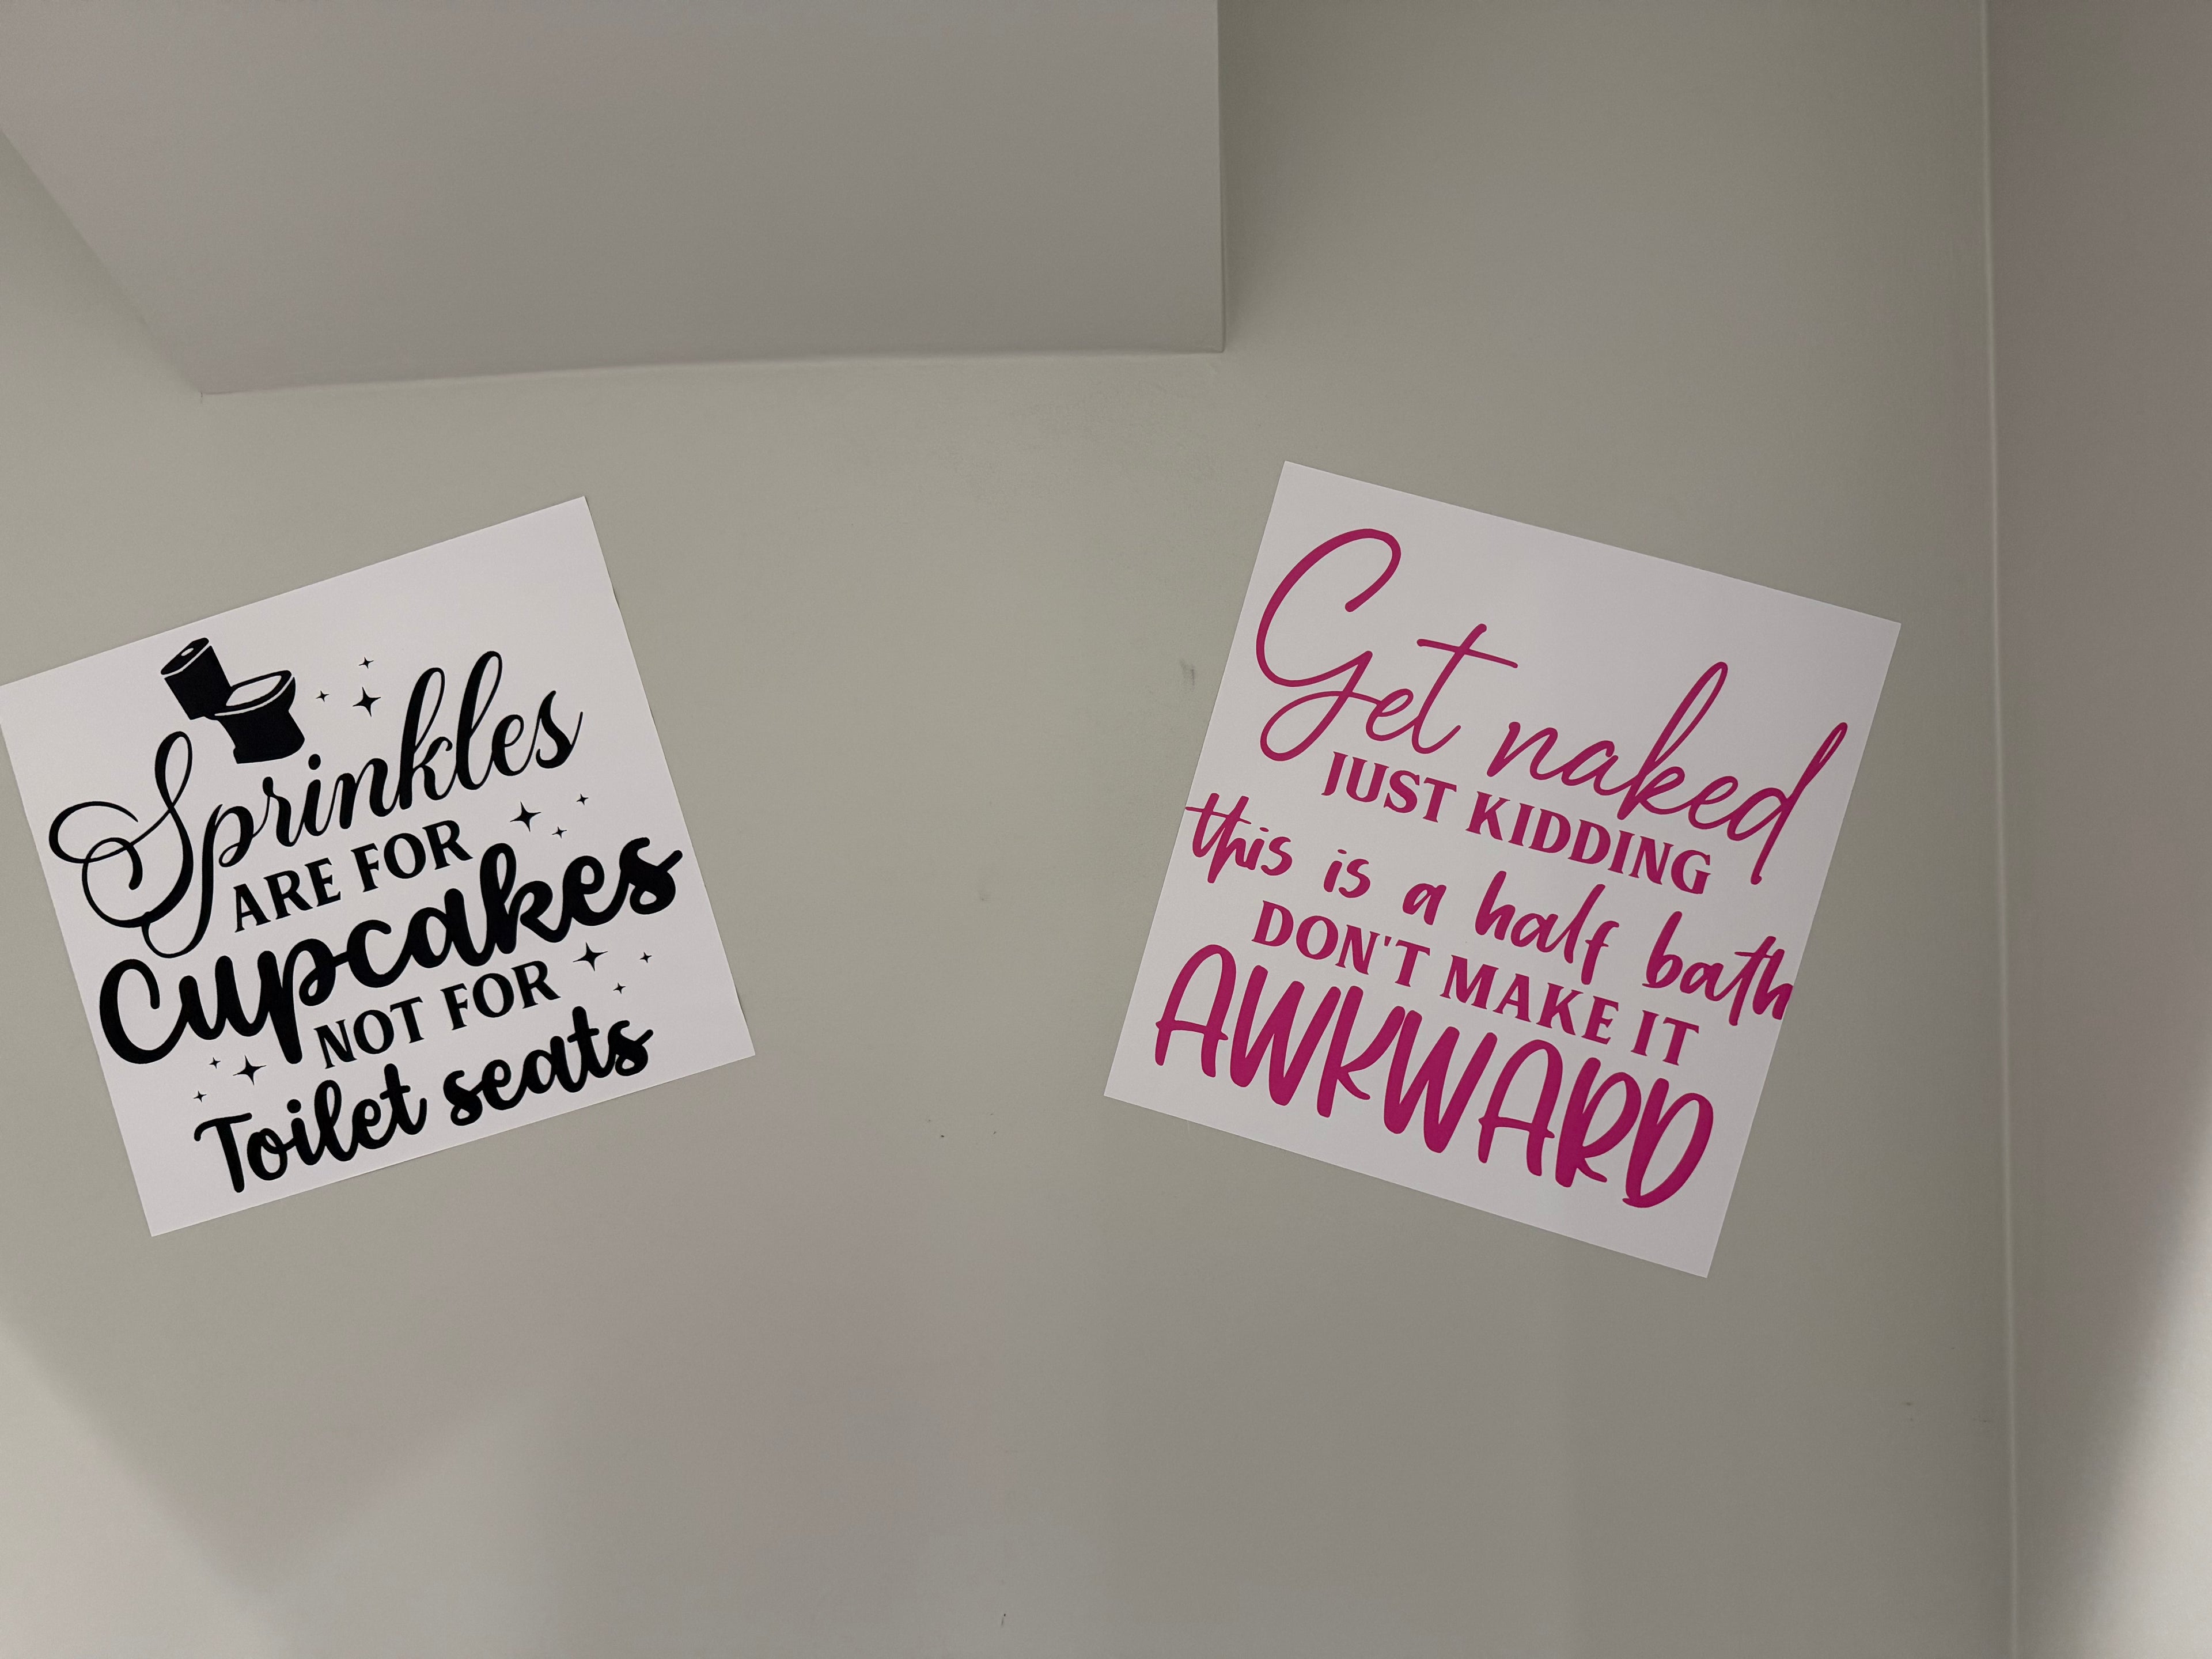 Sprinkles
ARE FOR
Cupcakes
NOT FOR
Toilet seats
Get naked
JUST KIDDING
this is a half bath
DON'T MAKE IT
AWKWARD